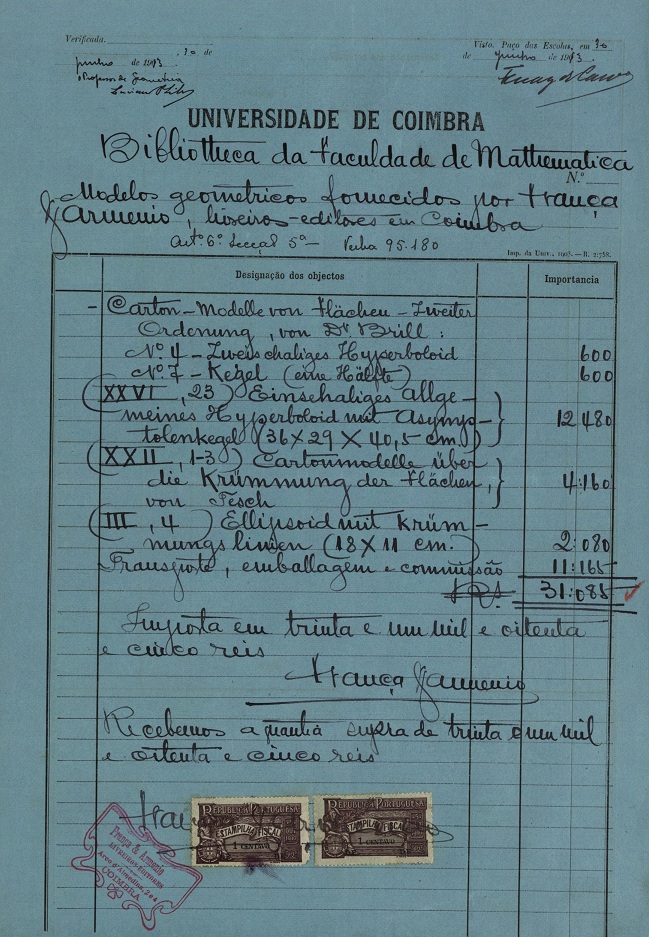 Verificada 30 de
junho de 1913
o Professor de Geometria
Visto. Paço das Escolas, em 30
de junho de 1913.
UNIVERSIDADE DE COIMBRA
Bibliotheca da Faculdade de Mathematica
N.º
Modelos geometricos fornecidos por França
& Armenio, livreiros-editores em Coimbra
Art.º 6º Secçaõ 5ª – Verba 95.180
Imp. da Univ., 1907.—B. 2:758.
Designação dos objectos
Importancia
– Carton-Modelle von Flächen – Zweiter
Ordenung, von Dr Brill:
Nº 4 – Zweischaliges Hyperboloid 600
Nº 7 – Kegel (eine Hälfte) 600
(XXVI, 23) Einschaliges allge-
meines Hyperboloid mit Asymp- 12 480
totenkegel (36 X 29 X 40,5 cm.)
(XXII, 1-3) Cartonmodelle über
die Krümmung der Flächen, 4:160
von Tesch
(III, 4) Ellipsoid mit Krüm-
mungslinien (18 X 11 cm.) 2:080
Transporte, emballagem e commissão 11:165
31:085
Importa em trinta e um mil e oitenta
e cinco reis
França & Armenio
Recebemos a quantia supra de trinta e um mil
e oitenta e cinco reis
REPUBLICA PORTUGUESA
ESTAMPILHA FISCAL
1 CENTAVO
REPUBLICA PORTUGUESA
ESTAMPILHA FISCAL
1 CENTAVO
França & Armenio
COIMBRA